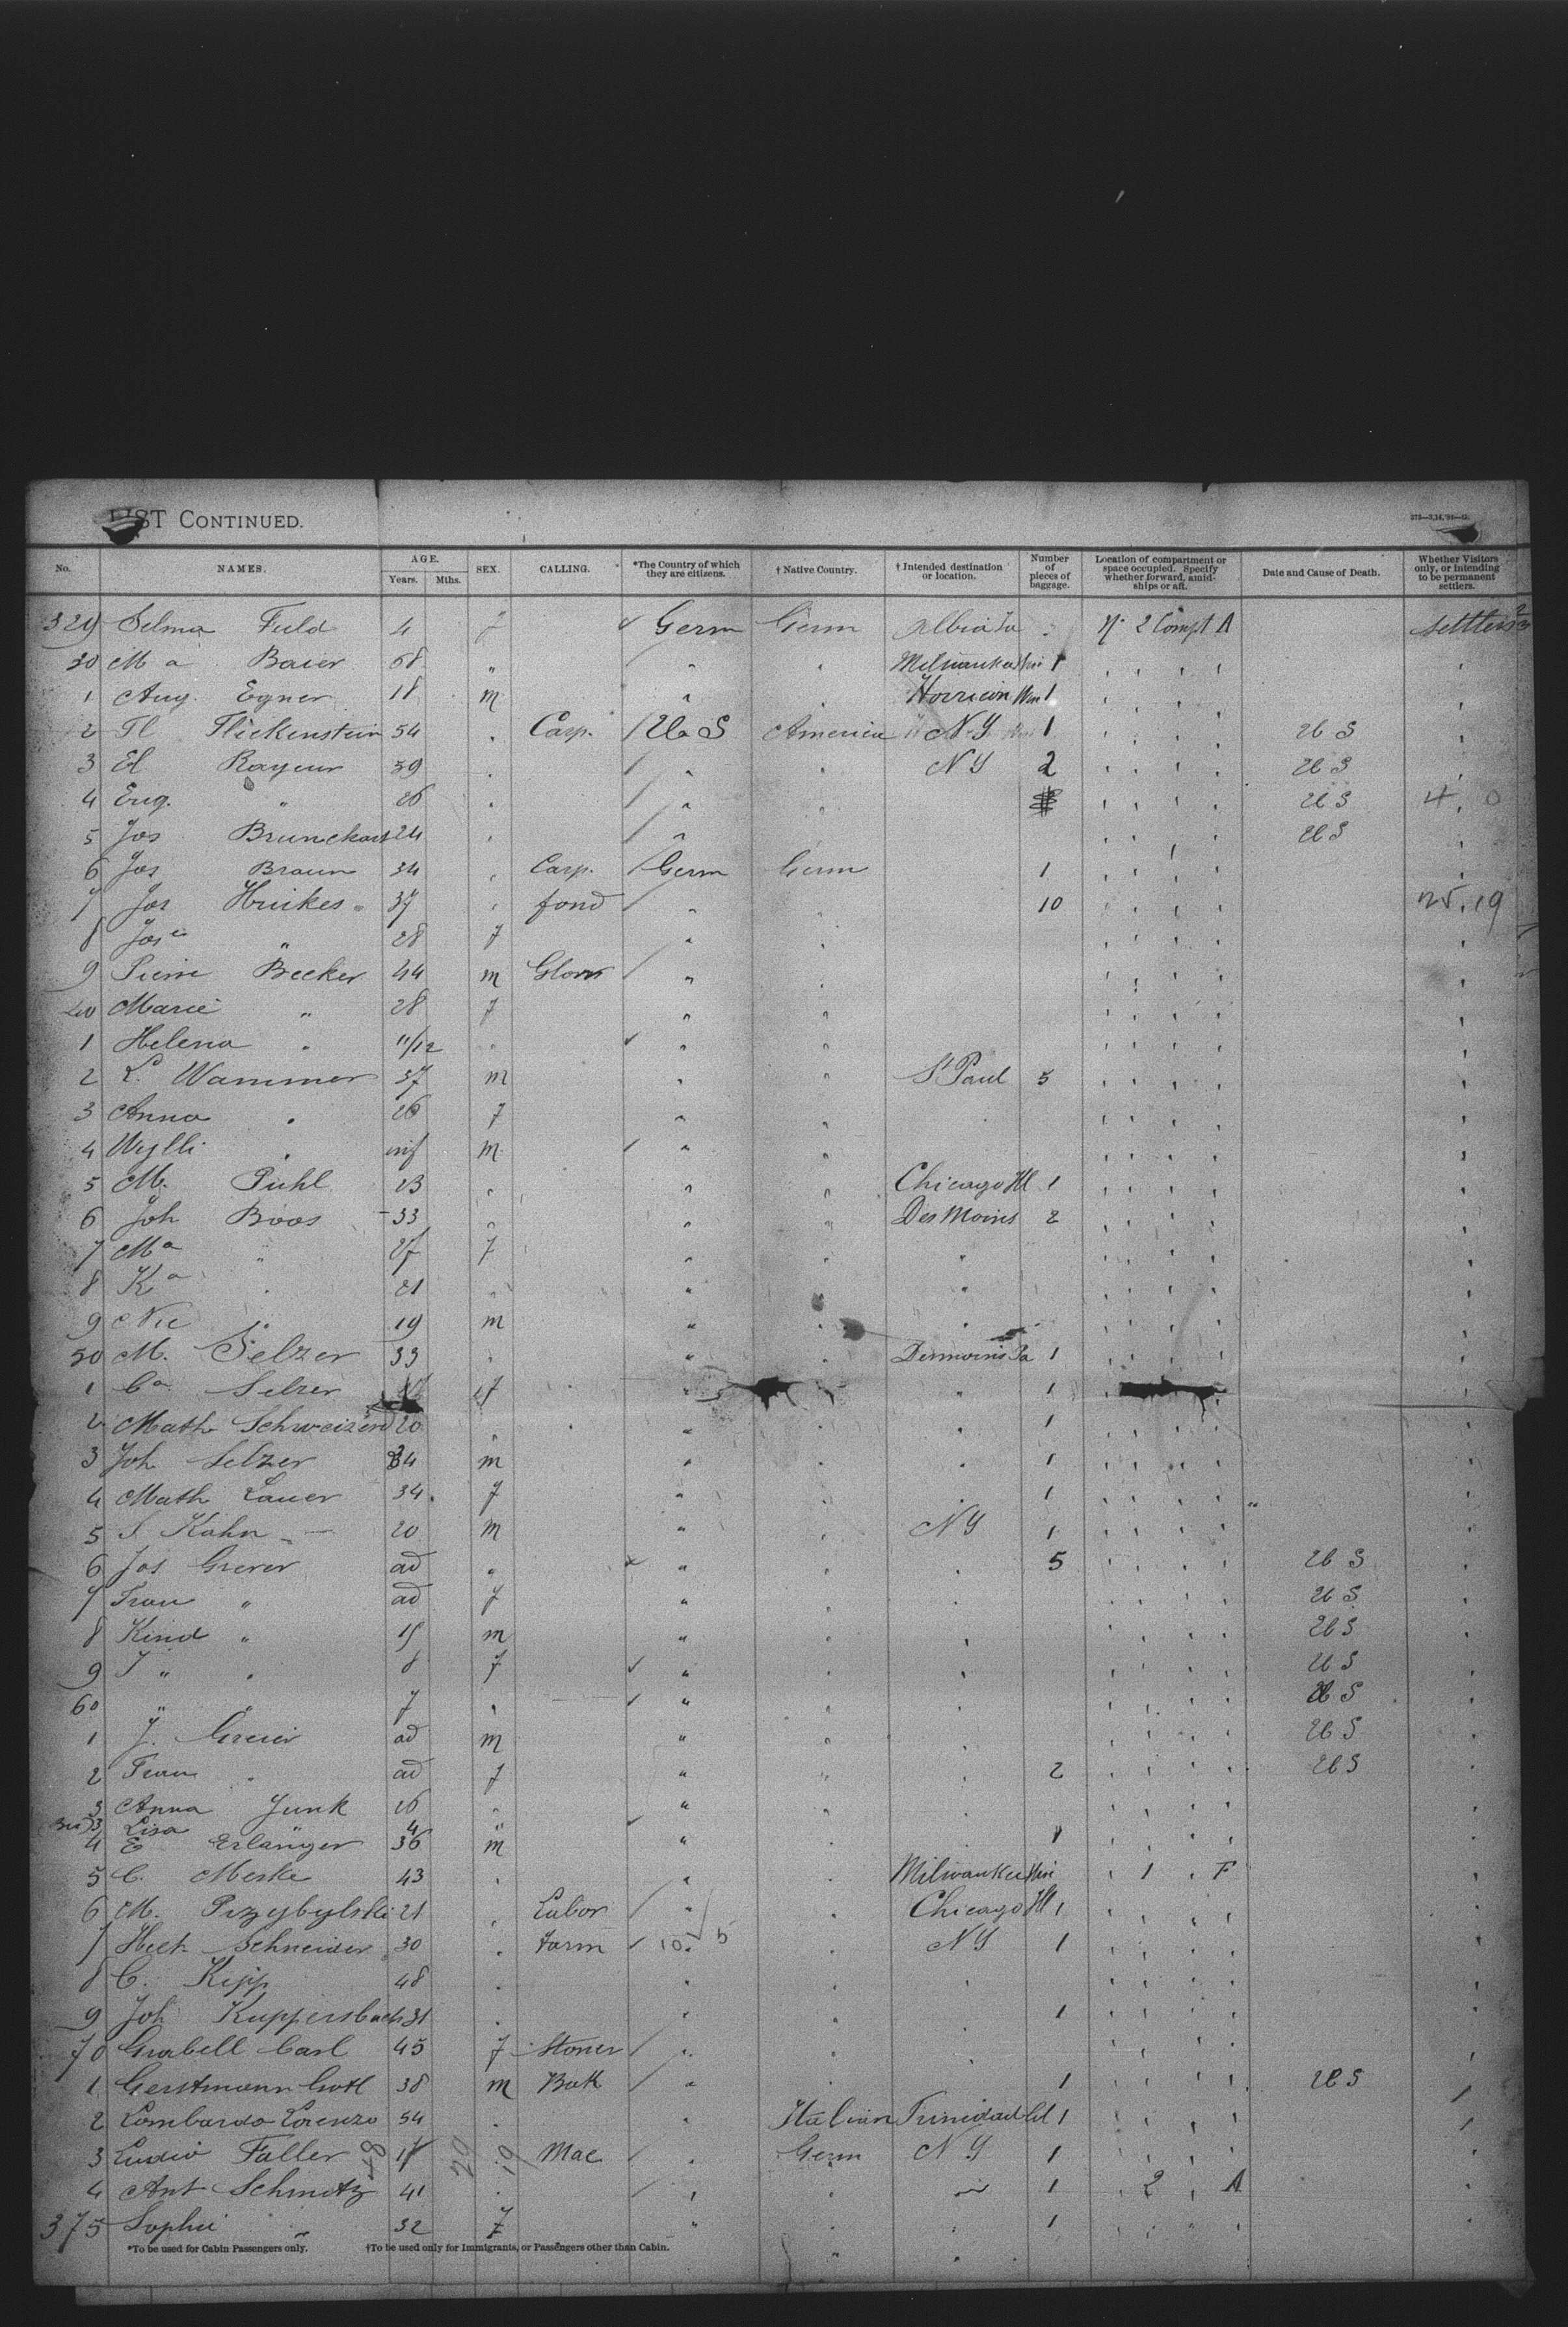 LIST CONTINUED.
No. NAMES. AGE. Years. Mths. SEX. CALLING. *The Country of which they are citizens. † Native Country. † Intended destination or location. Number of pieces of baggage. Location of compartment or space occupied. Specify whether forward, amidships or aft. Date and Cause of Death. Whether Visitors only, or intending to be permanent settlers.
329 Selma Fuld 4 f Germ Germ Albia Ia 2 Compt A settlers
30 Ma Baier 68 " " Milwaukee Wis 1
1 Aug. Egner 18 m " Horricon Wis 1
2 Fl Flickenstein 54 Carp. U S America NY 1 US
3 El Rayeur 59 " NY 2 US
4 Eug. " 26 " US 4 0
5 Jos 24 " US
6 Jos Braun 34 Carp. Germ Germ 1
7 Jos 37 fond " 10 25.19
8 Jos a " 28 f "
9 Pierre Becker 44 m "
40 Marie " 28 f "
1 Helena " 11/12 "
2 L. Wammer 37 m " St Paul 5
3 Anna " 26 f "
4 Wylli " inf m "
5 M. Puhl 23 " Chicago Ill 1
6 Joh Boos 33 " Des Moins 2
7 Ma " 27 f " "
8 Ka " 21 " "
9 Nic " 19 m " "
50 M. Selzer 33 " Desmoins Ia 1
1 Ca Selzer f " " 1
2 Math 20 " " 1
3 Joh Selzer 34 m " " 1
4 Math Lauer 34 f " " 1
5 S. Kahn 20 m " NY 1
6 Jos Grever ad " " 5 US
7 Frau " ad f " US
8 Kind " m " US
9 " " 8 f " US
60 " " 7 " US
1 J. Greier ad m " US
2 Frau " ad f " 2 US
3 Anna Junk 26 "
3 Lisa " 4 "
4 E Erlanger 36 m " 1
5 C. Meske 43 " Milwaukee Wis 1 F
6 M. Przybylski 21 Labor " Chicago Ill 1
7 Schneider 30 Farm 10 5 NY 1
8 C. Kipp 48 "
9 Joh Kuppersbach 31 " 1
70 Grabell Carl 45 f "
1 Gerstmann Gotl 38 m Bak " 1 US
2 Lombardo Lorenzo 54 " Italian Trinidad Col 1
3 Faller 17 Mac " Germ NY 1
4 Ant Schmitz 41 " 1 2 A
375 Sophie " 32 f " 1
*To be used for Cabin Passengers only. †To be used only for Immigrants, or Passengers other than Cabin.